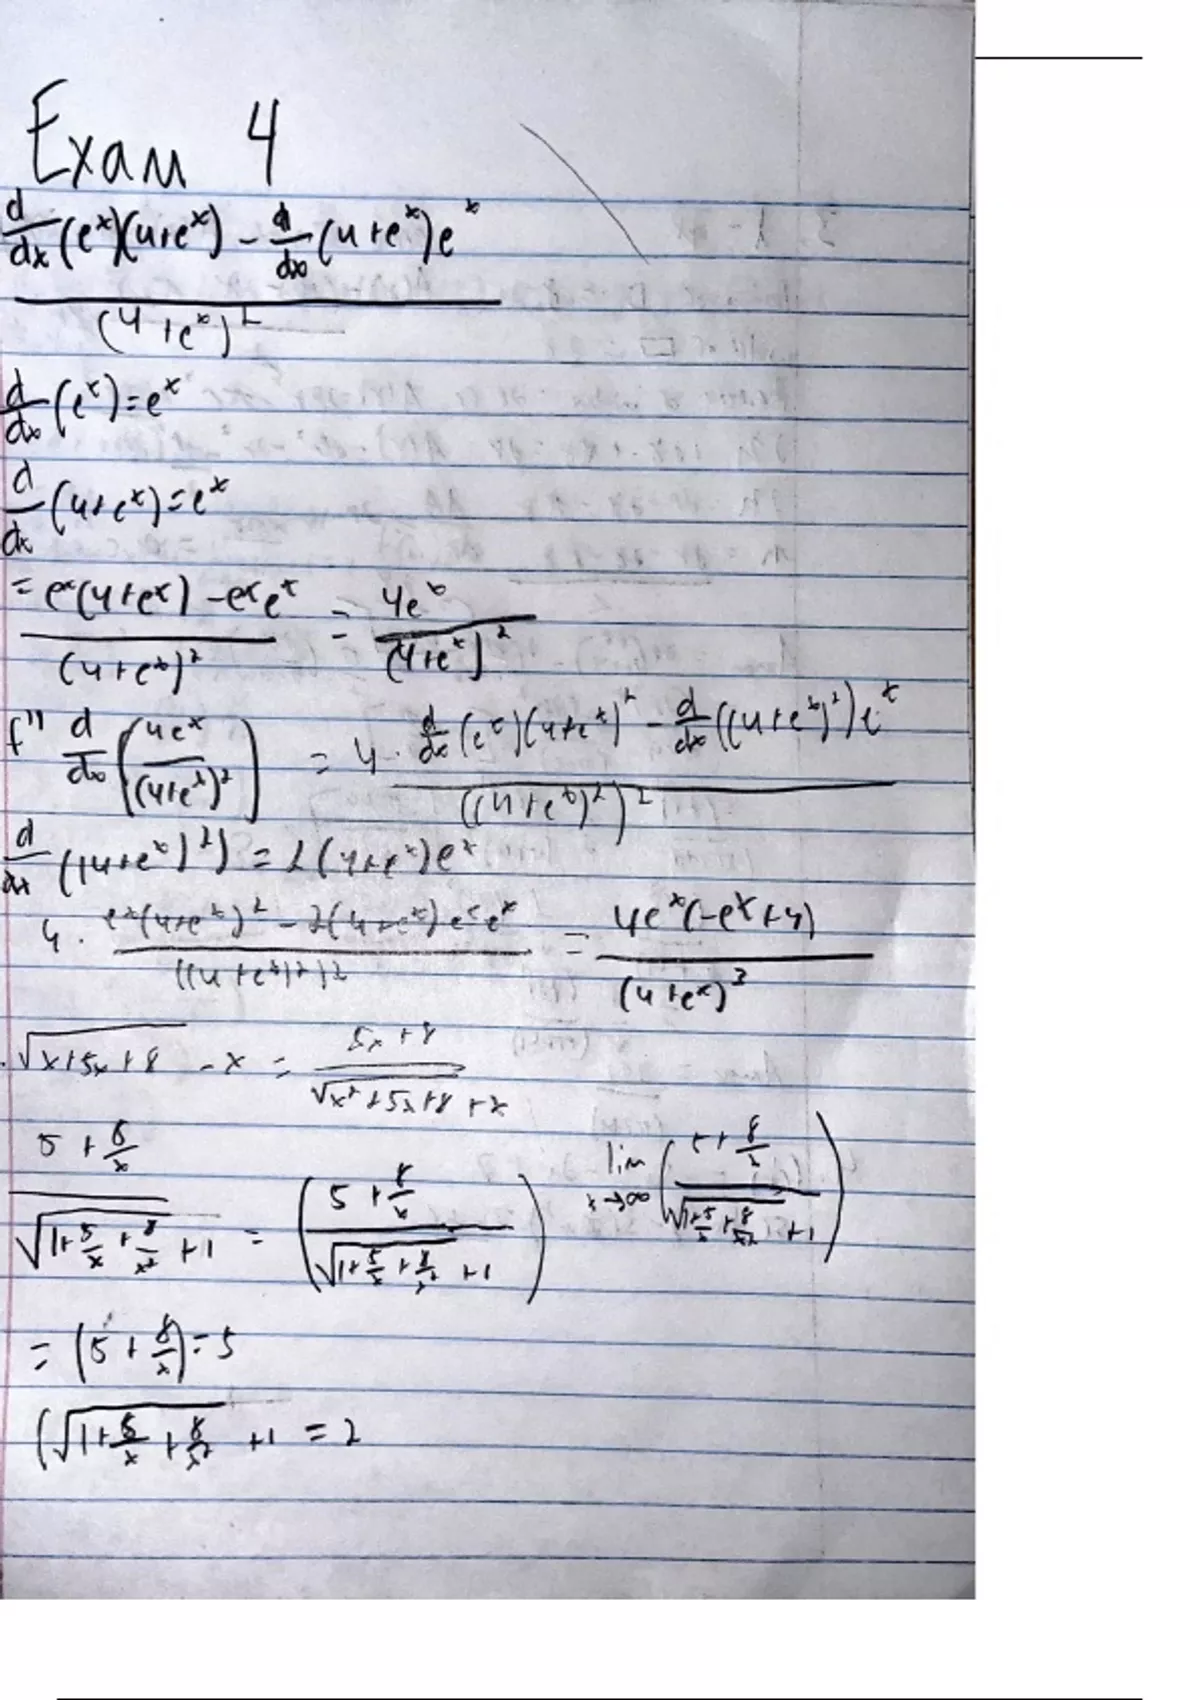 Exam 4
d/dx (e^x)(4+e^x) - d/dx (4+e^x) e^x
(4+e^x)^2
d/dx (e^x) = e^x
d/dx (4+e^x) = e^x
= e^x(4+e^x) - e^x e^x / (4+e^x)^2 = 4e^x / (4+e^x)^2
f'' d/dx (4e^x / (4+e^x)^2) = 4 · d/dx (e^x)(4+e^x)^2 - d/dx ((4+e^x)^2) e^x / ((4+e^x)^2)^2
d/dx ((4+e^x)^2) = 2(4+e^x)e^x
4 · e^x(4+e^x)^2 - 2(4+e^x)e^x e^x / ((4+e^x)^2)^2 = 4e^x(-e^x+4) / (4+e^x)^3
√(x+5x+8) - x = 5x+8 / √(x^2+5x+8) + x
5 + 8/x / √(1+5/x+8/x^2) + 1 = (5 + 8/x / √(1+5/x+8/x^2) + 1) lim x→∞ (5 + 8/x / √(1+5/x+8/x^2) + 1)
= (5 + 8/x) = 5
(√(1+5/x+8/x^2) + 1 = 2